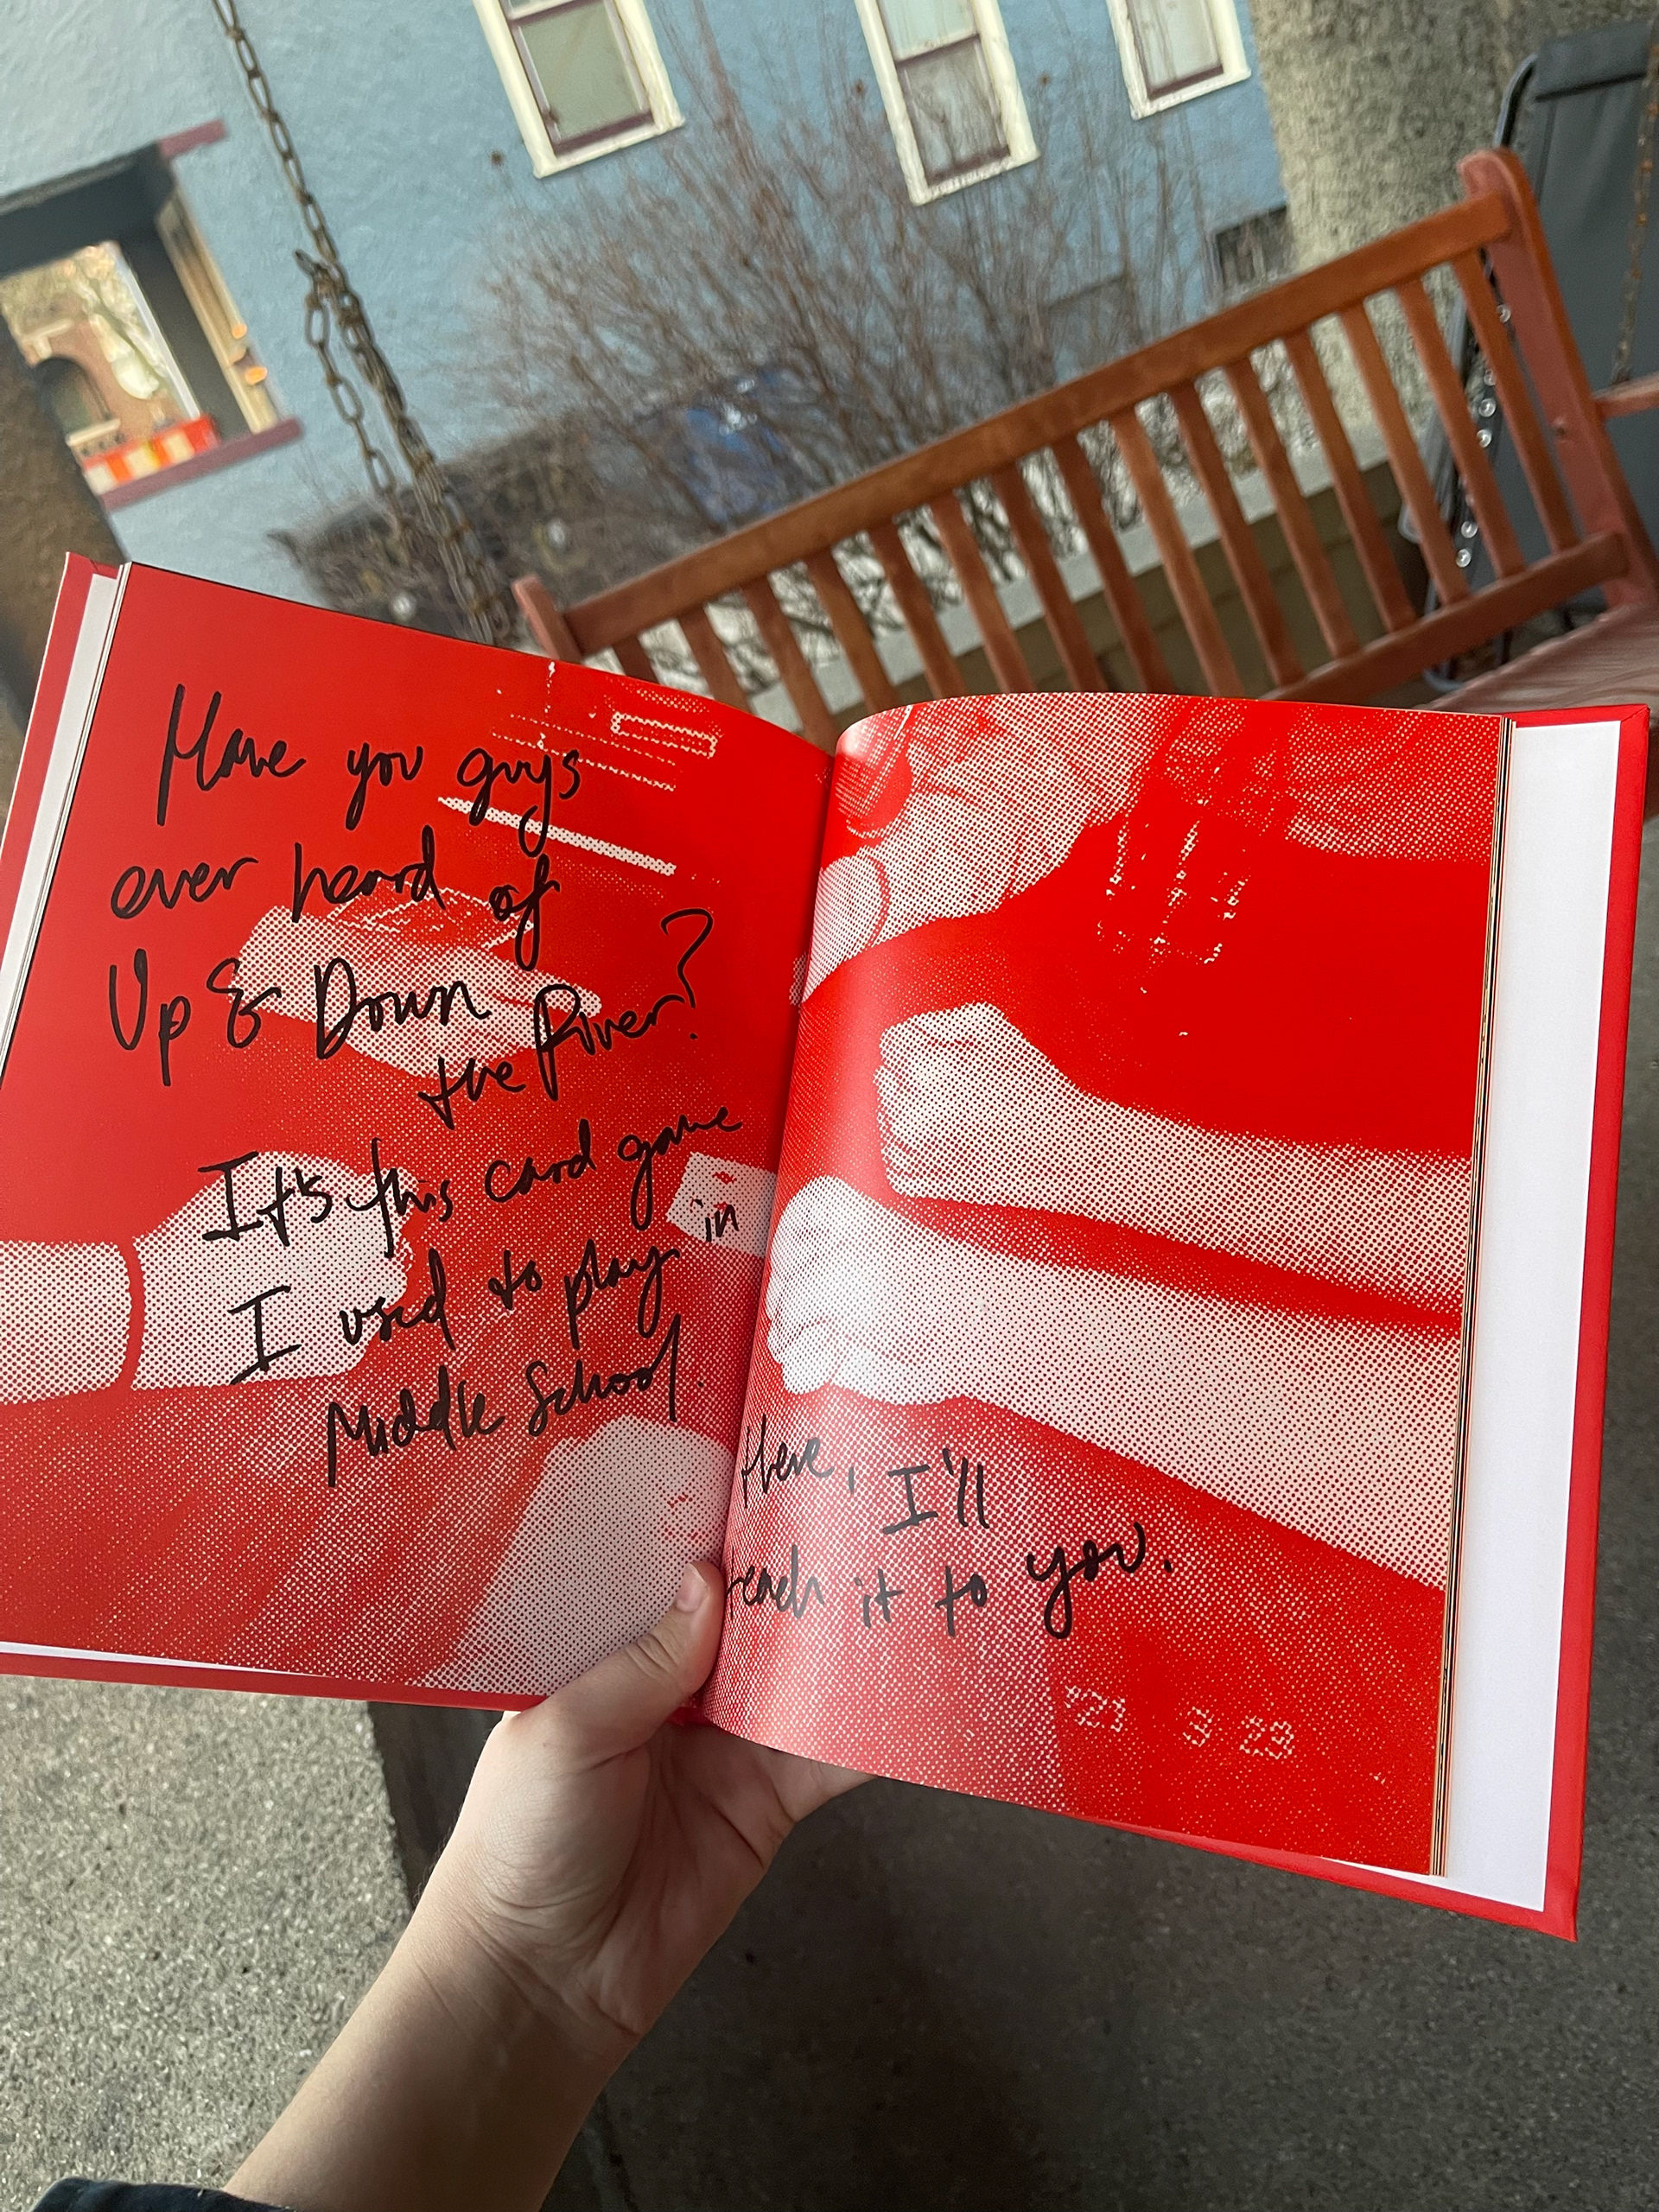 Have you guys
ever heard of
Up & Down
the River?
It's this card game
I used to play in
Middle School.
Here, I'll
teach it to you.
'21 3 29